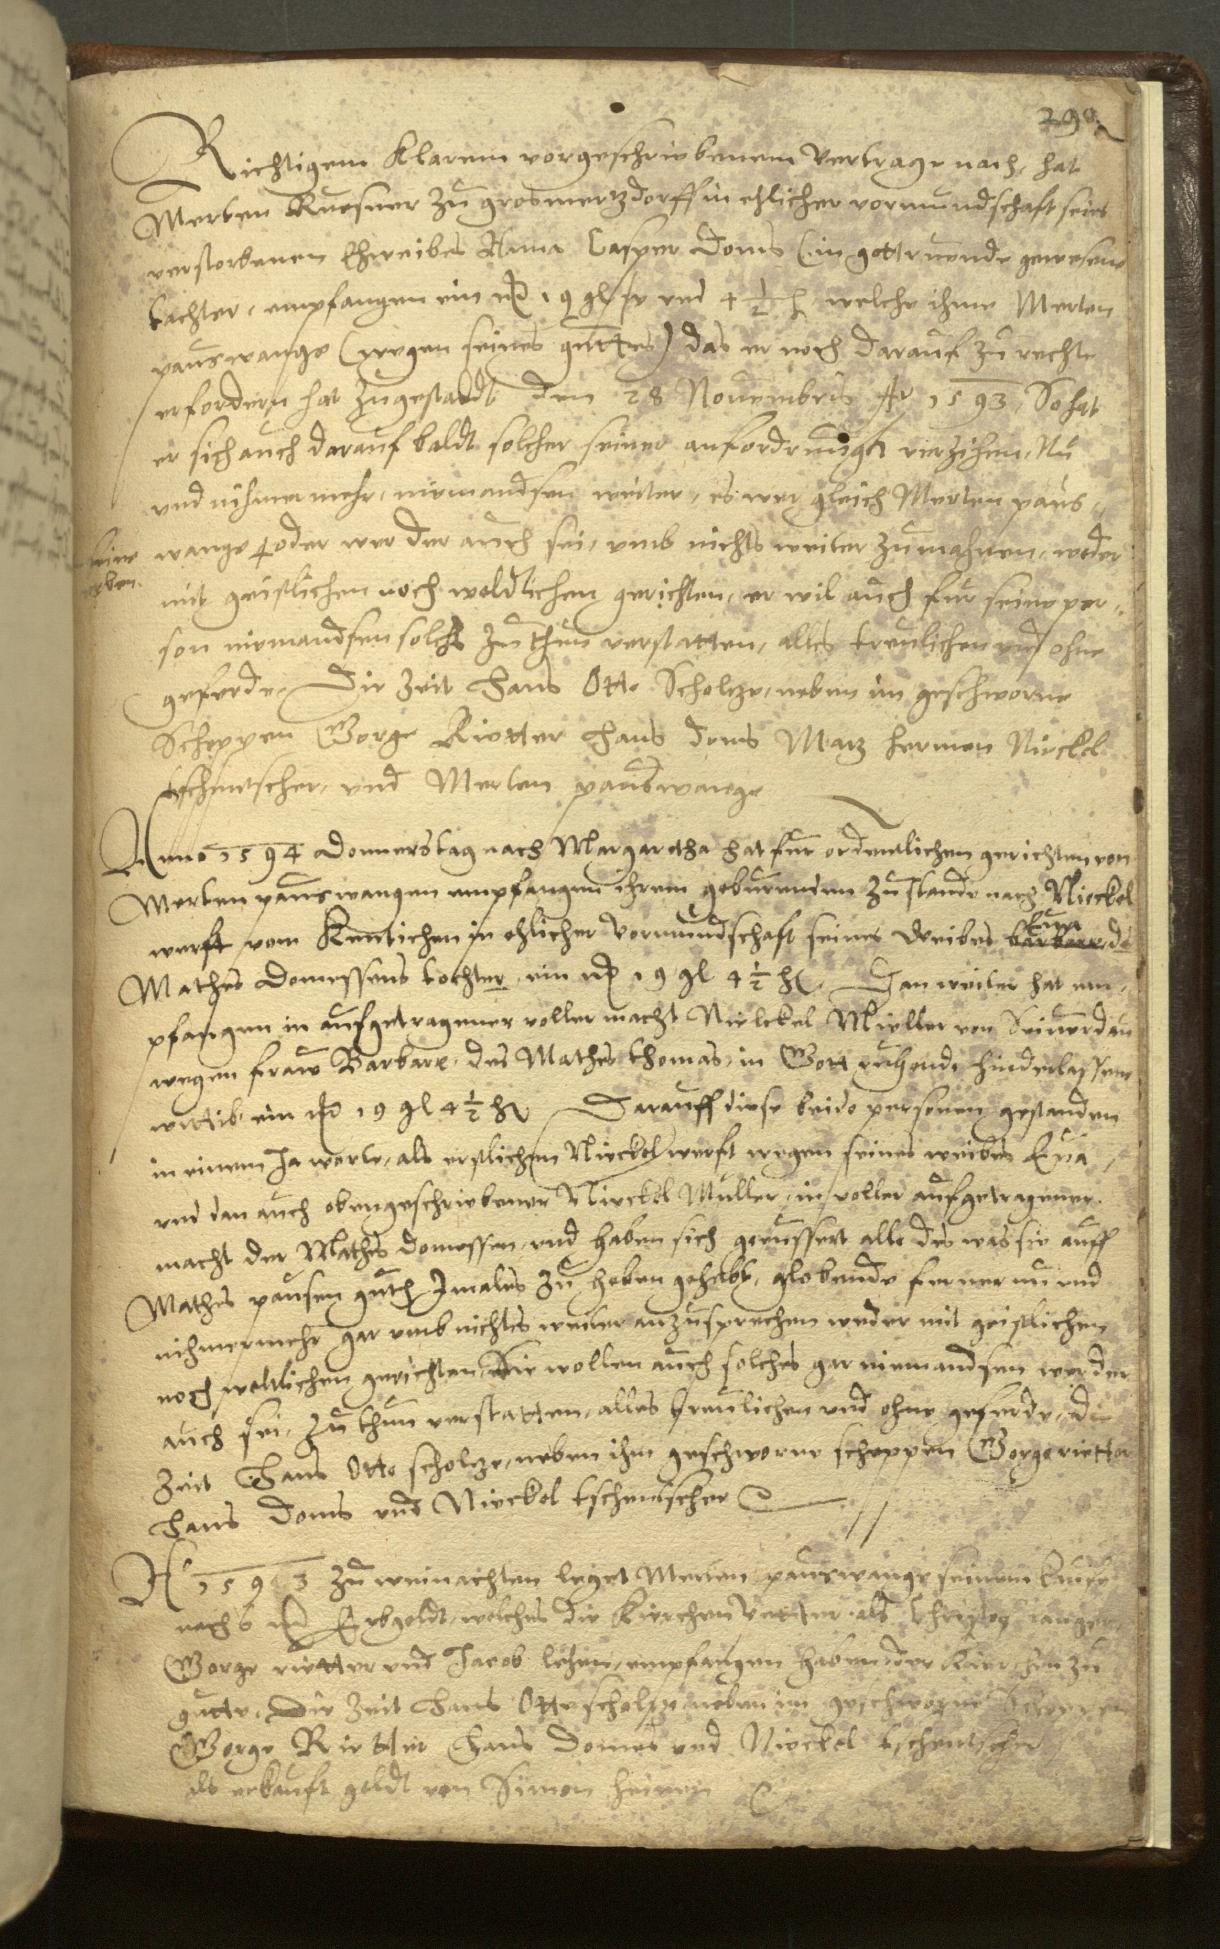 290
Richtigem Klarem vorgeschriebenem Vertrage nach, hat
Merten Kuesner zu grosmertzdorff in ehlicher vormundschaft seines
verstorbenen Eheweibes Anna Casper Doms (in gott ruende gewesene
tochter, empfangen ein 19 gl und 4 ½ h, welche ihme Merten
pauswange (wegen seines guttes) das er noch darauf zu rechte
erfordern hat zugestandt den 28 Nouembris Ao 1593, So hat
er sich auch darauf baldt solcher seiner anforderunge verzihen, Nu
und nihmermehr, niemandsen weiter, es wer gleich Merten paus-
wange oder wer der auch sei, umb nichts weiter zumahnen, weder
seine
erben.
mit geistlichen noch weldtlichen gerichten, er wil auch für seine per-
son niemandsen solchs zu thun verstatten, alles treulichen und ohne
geferde. Die Zeit Hans Otto Scholcze, neben im geschworne
Scheppen George Rietter Hans doms Matz herman Nickel
tschentscher, und Merten pauswange
Anno 1594 Donnerstag nach Margaretha hat für ordentlichen gerichten von
Merten pauswangen empfangen ihrem geburenden Zustande nach Nickel
werft vom Kentichen in ehlicher Vormundschaft seines Weibes barbara des
Eua
Mathes Domessens tochter, ein 19 gl 4 ½ h. Dan weiter hat em-
pfangen in aufgetragener voller macht Nickel Müller von
wegen fraw Barbara, des Mathes thomas, in Gott ruhende hinderlassene
wittib ein 19 gl 4 ½ h Darauff diese beide personen gestanden
in einem Ja worte, als erstlichen Nickel werft wegen seines weibes Eua,
und dan auch obengeschriebener Nickel Müller, in voller aufgetragener
macht der Mathes Domessen, und haben sich geeussert alle des was sie auff
Mathes pausen guth Jmales zu haben gehabt, globende ferner nu und
nihmermehr gar umb nichtes weiter anzusprechen weder mit geistlichen
noch weltlichen gerichten, Sie wollen auch solches gar niemandsen wer der
auch sei, zu thun verstatten, alles treulichen und ohne geferde, die
Zeit Hans Otto scholcze, neben ihm geschworne scheppen George rietter
Hans Doms und Nickel tschentscher
Ao 1593 zu weinachten leget Merten pauswange seinem kaufe
nach 6 Erbgeldt, welches die Kirchen Vetter als Christof langer,
George rietter und Jacob lehen, empfangen haben der Kirchen zu
gutte. Die Zeit Hans Otto scholcze neben im geschworne scheppen
George Rietter Hans Domes und Nickel tschentscher
als erkauft geldt von Simon heinen